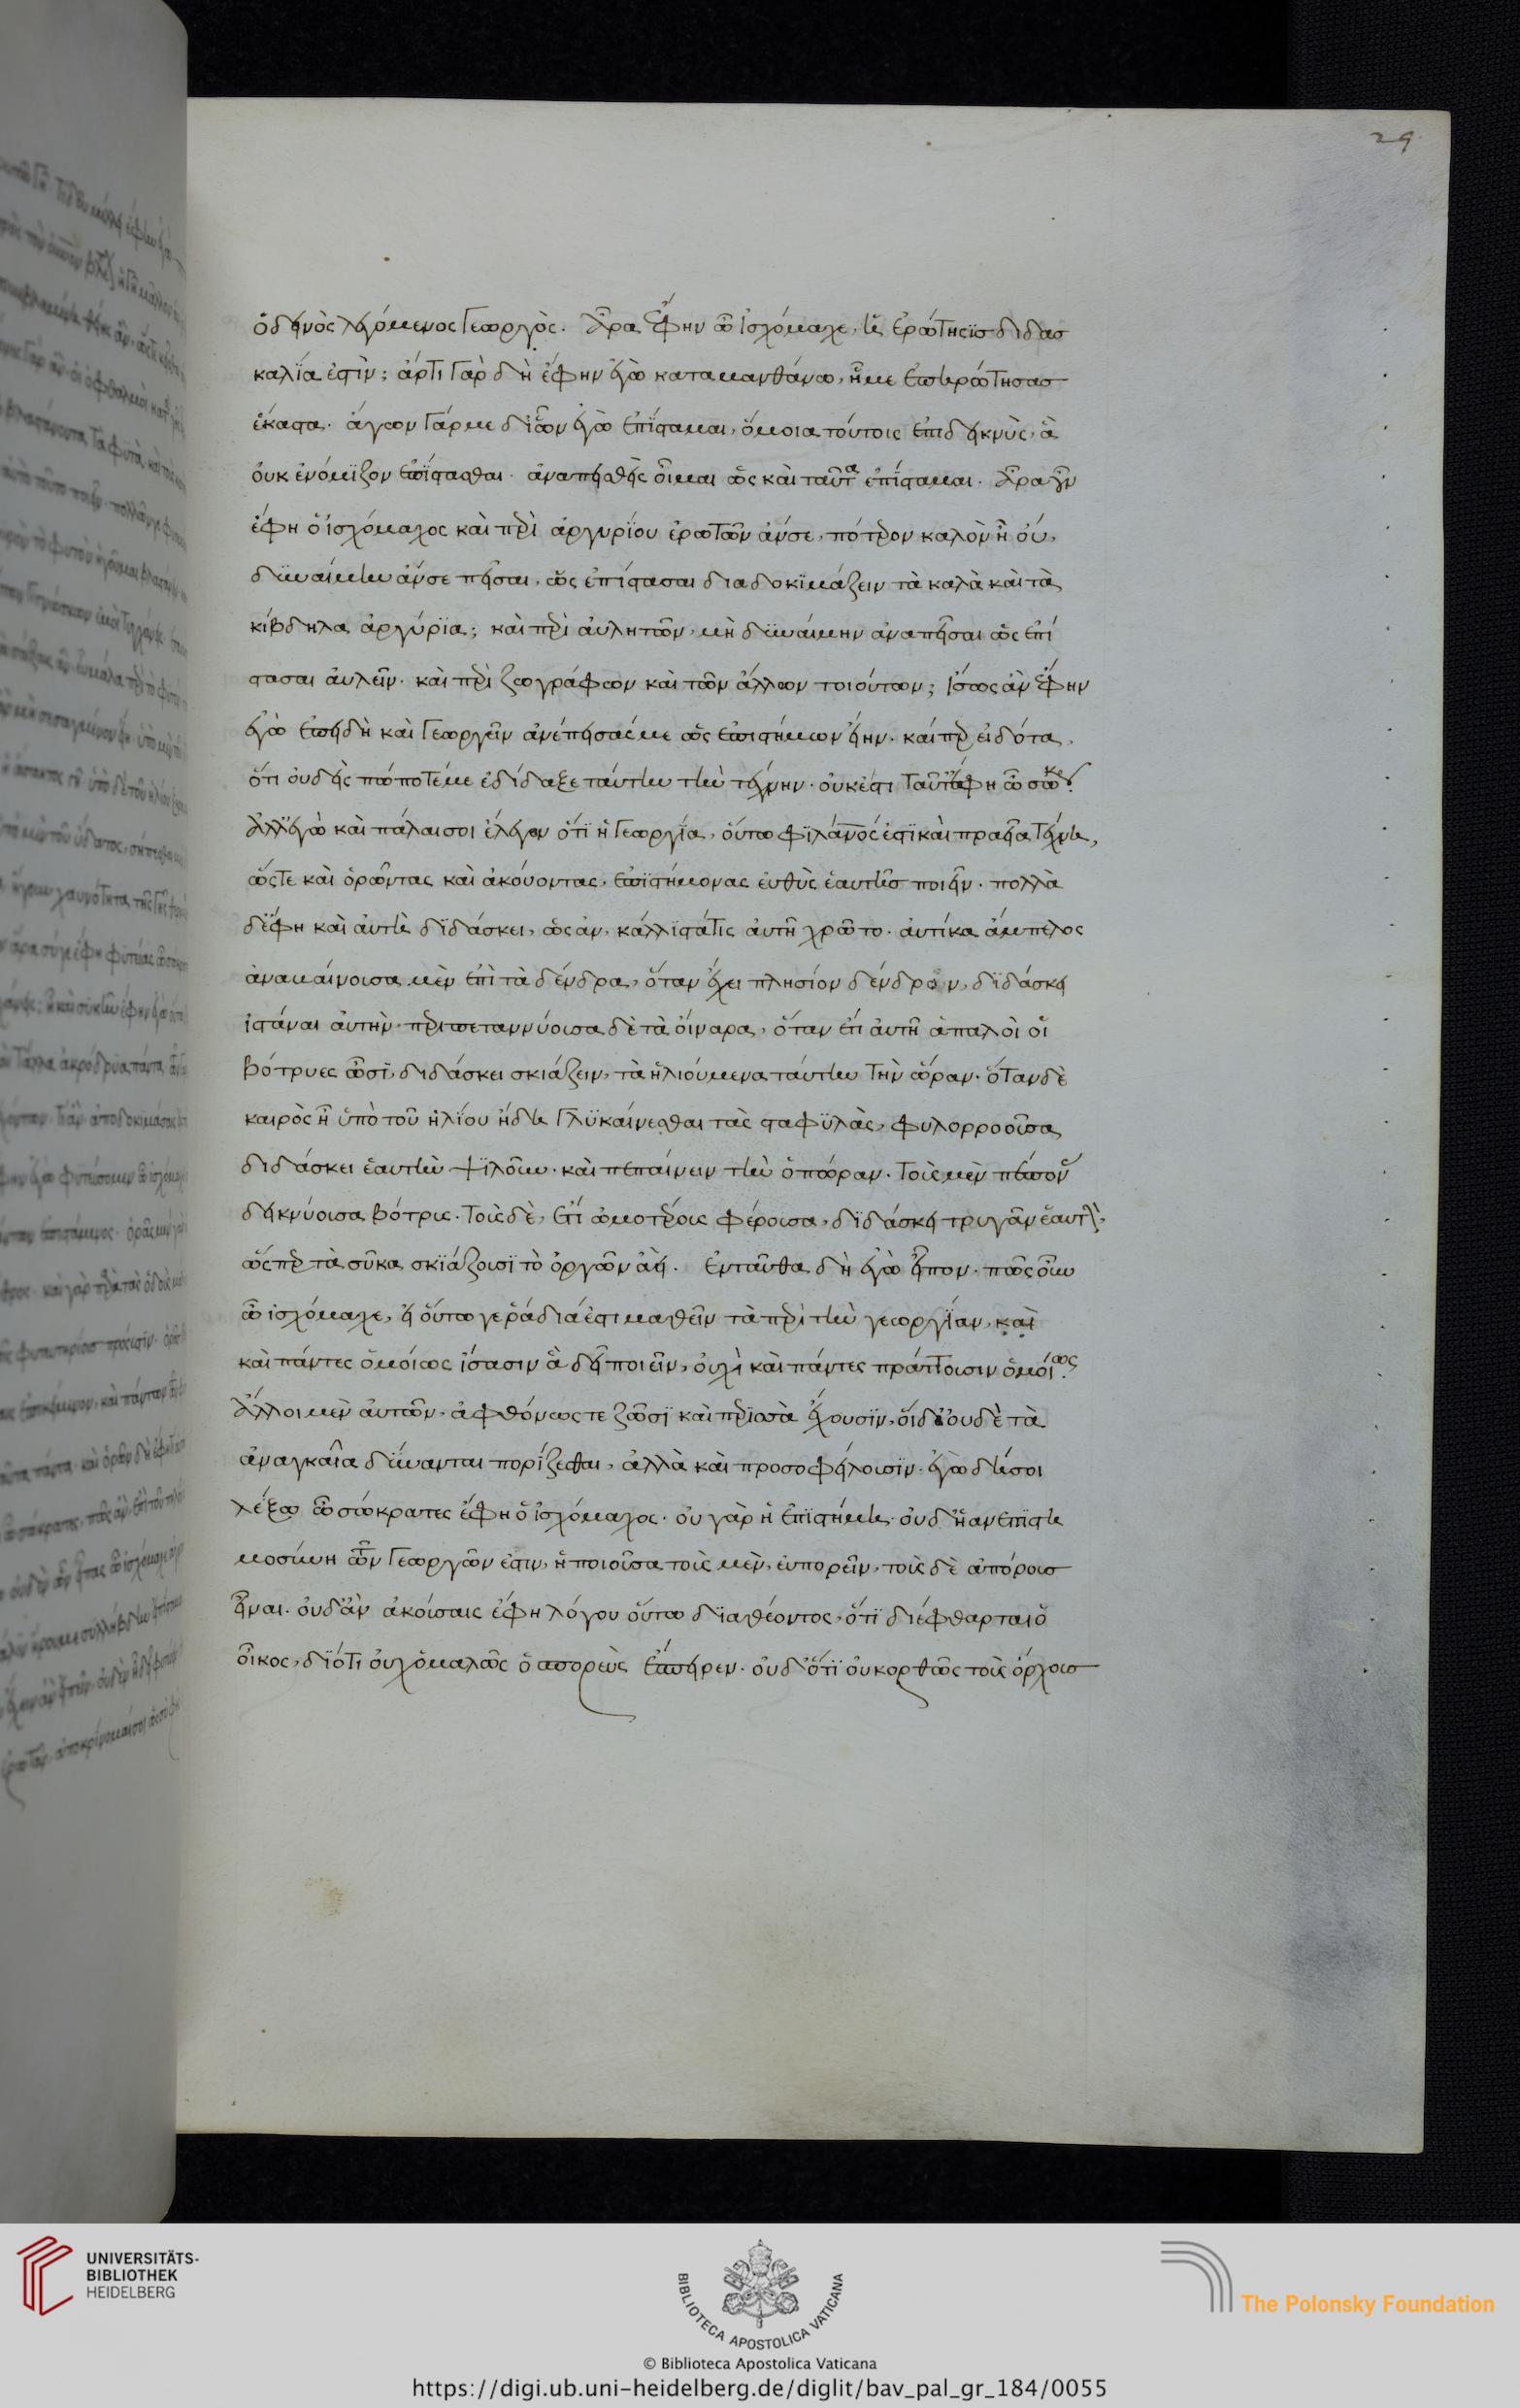 29
ὁ δεινὸς λεγόμενος Γεωργὸς. Ἆρα ἔφην ὦ ἰσχόμαχε, ἡ ἐρώτησϊσ διδασ
καλΐα ἐστὶν; ἄρτι Γὰρ δὴ ἔφην ἐγὼ καταμανθάνω, ἧ με ἐπηρώτησασ
ἕκαστα. ἄγων Γάρ με δι ὧν ἐγὼ ἐπΐσταμαι, ὅμοια τούτοις ἐπιδεικνὺς, ἃ
οὐκ ἐνόμϊζον ἐπΐστασθαι. ἀναπείθεις οἶμαι ὡς καὶ ταῦτα ἐπΐσταμαι. Ἆρα οὖν
ἔφη ὁ ἰσχόμαχος καὶ περὶ ἀργυρΐου ἐρωτῶν ἄν σε, πότερον καλὸν ἢ οὐ,
δυναίμην ἄν σε πεῖσαι, ὡς ἐπίστασαι διαδοκϊμάζειν τὰ καλὰ καὶ τὰ
κίβδηλα ἀργύρϊα; καὶ περὶ αὐλητῶν, μὴ δυναίμην ἀναπεῖσαι ὡς ἐπί
στασαι αὐλεῖν. καὶ περὶ ζωγράφων καὶ τῶν ἄλλων τοιούτων; ἴσως ἂν ἔφην
ἐγὼ ἐπειδὴ καὶ Γεωργεῖν ἀνέπεισάς με ὡς ἐπιστήμων εἴην. καί περ εἰδότα,
ὅτι οὐδεὶς πώποτέ με ἐδίδαξε ταύτην τὴν τέχνην. οὐκ ἔστι ταῦτ ἔφη ὦ σώκρ.
Ἀλλ ἐγὼ καὶ πάλαι σοι ἔλεγον ὅτϊ ἡ Γεωργΐα, οὕτω φϊλάνος ἐστϊ καὶ πραεῖα τέχνη,
ὥςτε καὶ ὁρῶντας καὶ ἀκούοντας, ἐπϊστήμονας εὐθὺς ἑαυτῆσ ποιεῖν. πολλὰ
δ ἔφη καὶ αὐτὴ δϊδάσκει, ὡς ἂν, κάλλϊστά τις αὐτῆ χρῶτο. αὐτίκα ἄμπελος
ἀναμαίνουσα μὲν ἐπὶ τὰ δένδρα, ὅταν ἔχει πλησίον δένδρον, δϊδάσκει
ἱστάναι αὐτὴν. περιπεταννύουσα δὲ τὰ οἴναρα, ὅταν ἔτι αὐτῆ ἁπαλοὶ οἱ
βότρυες ὦσϊ, διδάσκει σκιάζειν, τὰ ἡλιούμενα ταύτην τὴν ὥραν. ὅταν δὲ
καιρὸς ἦ ὑπὸ τοῦ ἡλίου ἤδη Γλϋκαίνεσθαι τὰς σταφϋλὰς, φυλορροοῦσα
διδάσκει ἑαυτὴν ψϊλοῦν. καὶ πεπαίνειν τὴν ὀπώραν. τοὺς μὲν πέπονας
δεικνύουσα βότρυς. τοὺς δὲ, ἔτι ὠμοτέρους φέρουσα, δϊδάσκει τρυγᾶν ἑαυτὴν,
ὥςπερ τὰ σῦκα σκϊάζουσϊ τὸ ὀργῶν ἀεί. Ἐνταῦθα δὴ ἐγὼ εἶπον. πῶς οὖν
ὦ ἰσχόμαχε, εἰ οὕτω γε ῥάδιά ἐστι μαθεῖν τὰ περὶ τὴν γεωργΐαν, καὶ
καὶ πάντες ὁμοίως ἴσασιν ἃ δεῖ ποιεῖν, οὐχὶ καὶ πάντες πράττουσιν ὁμοίως.
Ἄλλοι μὲν αὐτῶν. ἀφθόνως τε ζῶσϊ καὶ περισσὰ ἔχουσϊν, οἱ δ οὐδὲ τὰ
ἀναγκαῖα δύνανται πορίζεσθαι, ἀλλὰ καὶ προσοφείλουσϊν. ἐγὼ δή σοι
λέξω ὦ σώκρατες ἔφη ὁ ἰσχόμαχος. οὐ γὰρ ἡ ἐπϊστήμη. οὐδ ἡ ἀνεπϊστη
μοσύνη τῶν Γεωργῶν ἐστιν, ἡ ποιοῦσα τοὺς μὲν, εὐπορεῖν, τοὺς δὲ ἀπόρουσ
εἶναι. οὐδ ἂν ἀκούσαις ἔφη λόγου οὕτω δϊαθέοντος, ὅτϊ διέφθαρται ὁ
οἶκος, δϊότι οὐχ ὁμαλῶς ὁ σπορεὺς ἔσπειρεν. οὐδ ὅτϊ οὐκ ορθῶς τοὺς ὄρχουσ
UNIVERSITÄTS-
BIBLIOTHEK
HEIDELBERG
BIBLIOTECA APOSTOLICA VATICANA
The Polonsky Foundation
© Biblioteca Apostolica Vaticana
https://digi.ub.uni-heidelberg.de/diglit/bav_pal_gr_184/0055